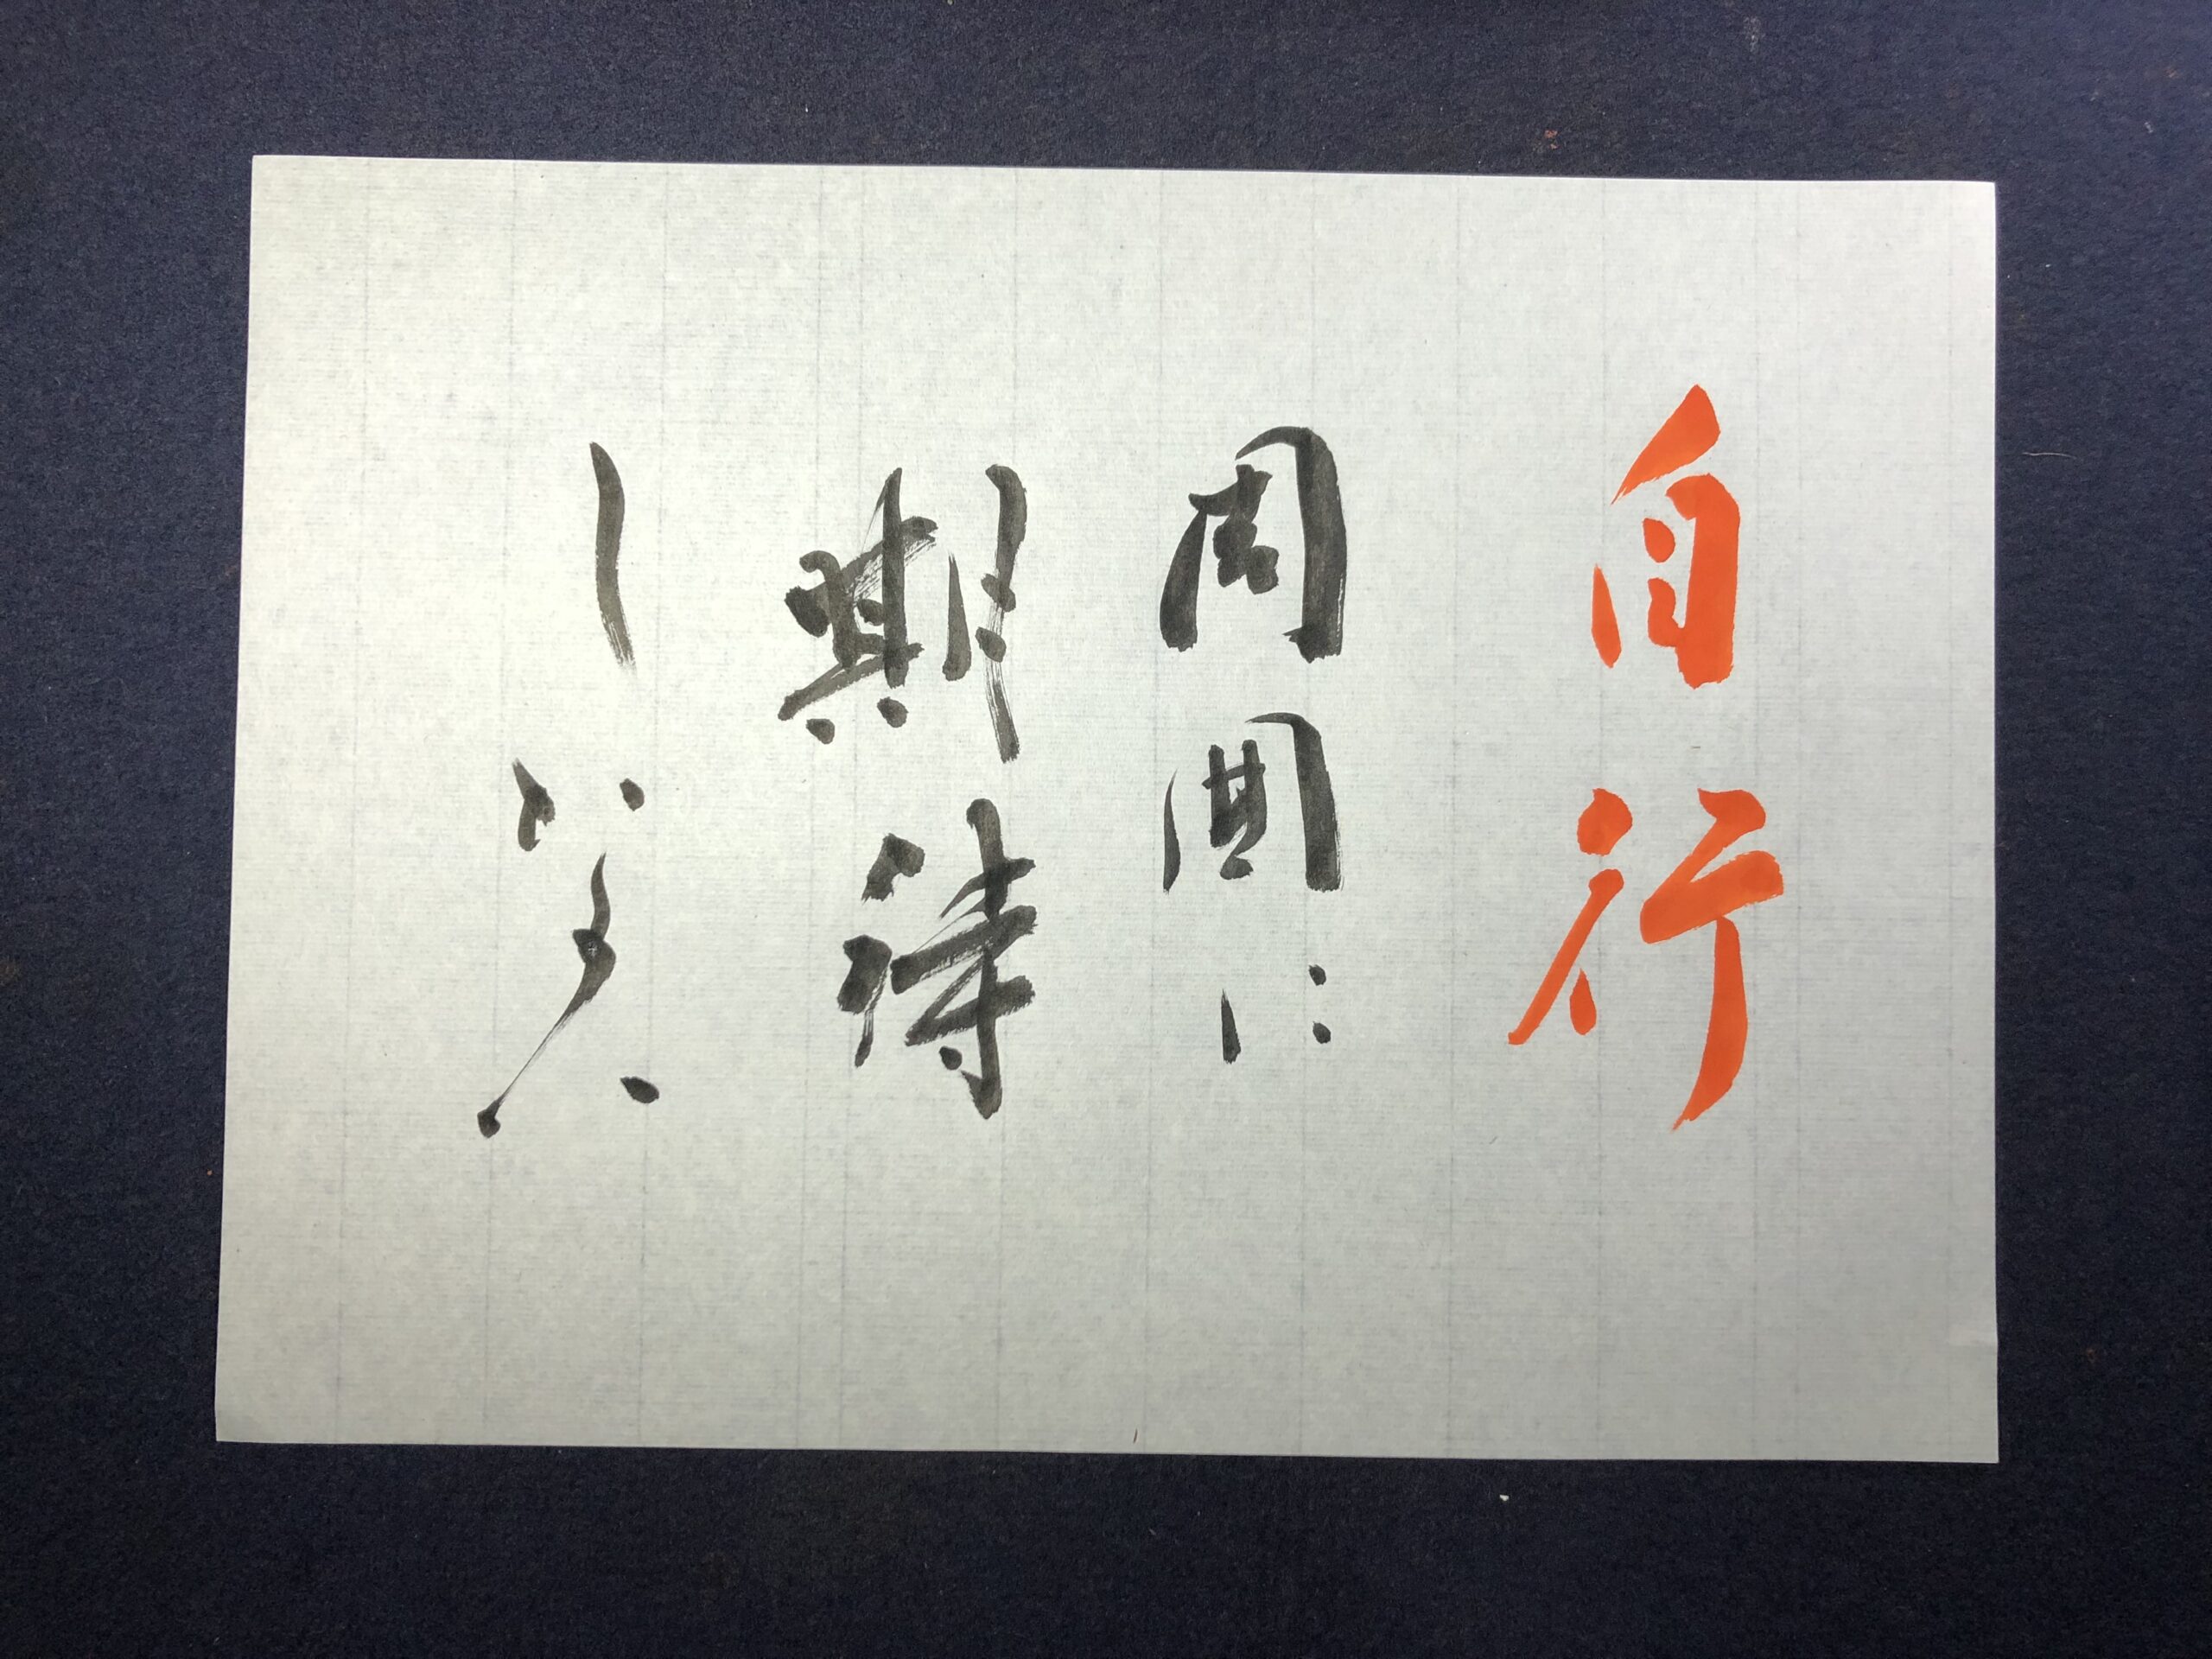 自行
周囲に
期待
しない